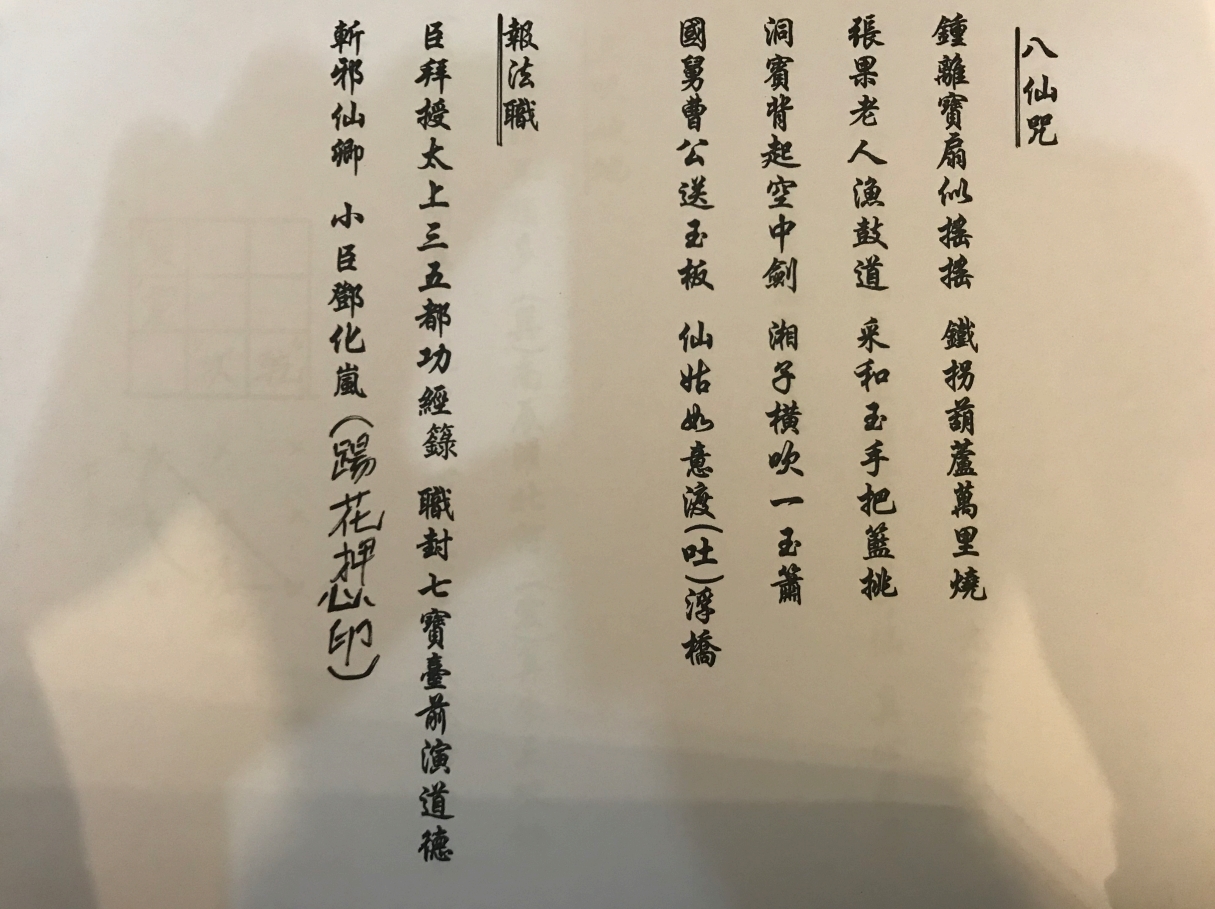 八仙咒
鍾離寶扇似搖搖 鐵拐葫蘆萬里燒
張果老人漁鼓道 采和玉手把籃挑
洞賓背起空中劍 湘子橫吹一玉簫
國舅曹公送玉板 仙姑如意渡(吐)浮橋
報法職
臣拜授太上三五都功經籙 職封七寶臺前演道德
斬邪仙卿 小臣鄧化嵐(踢花押心印)